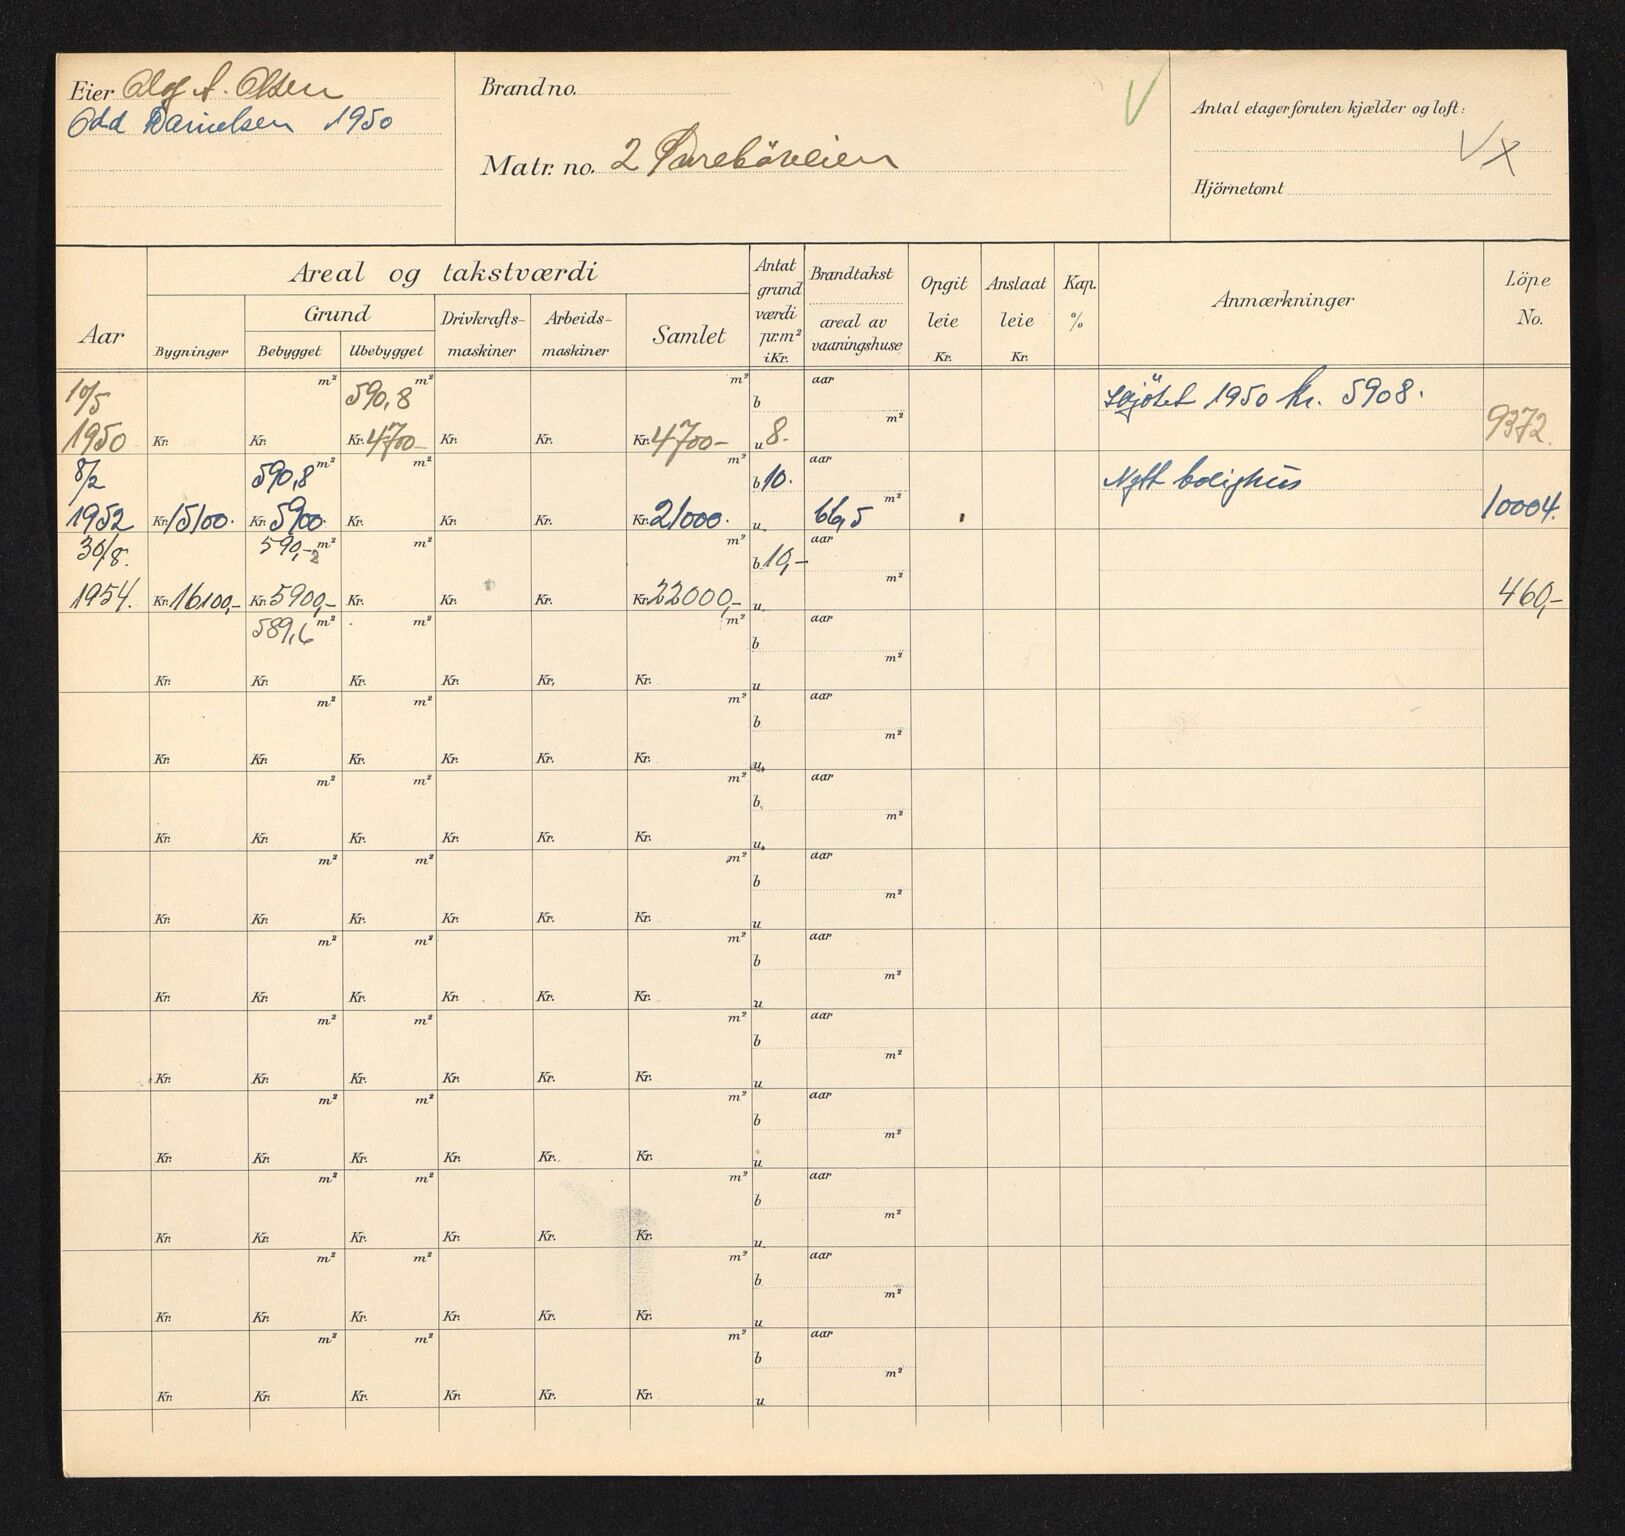 Eier Olaf A. Olsen
Odd Danielsen 1950
Brand no.
Matr. no. 2
Antal etager foruten kjælder og loft:
V X
Hjörnetomt
Areal og takstværdi
Aar
Bygninger
Grund
Bebygget
Ubebygget
Drivkrafts-
maskiner
Arbeids-
maskiner
Samlet
Antat
grund
værdi
pr. m²
i Kr.
Brandtakst
areal av
vaaningshuse
Opgit
leie
Kr.
Anslaat
leie
Kr.
Kap.
%
Anmærkninger
Löpe
No.
10/5 m² 590,8 m² m² b aar Skjötet 1950 kr. 5908.
1950 Kr. Kr. Kr. 4700- Kr. Kr. Kr. 4700- u 8.- m² 9372.
8/2 590,8 m² m² m² b 10. aar Nytt bolighus
1952 Kr. 15100. Kr. 5900. Kr. Kr. Kr. Kr. 21000. u 66,5 m² 10004.
30/8. 590,- m² m² m² b 10,- aar
1954. Kr. 16100,- Kr. 5900,- Kr. Kr. Kr. Kr. 22000,- u m² 460,-
589,6 m² m² m² b aar
Kr. Kr. Kr. Kr. Kr. Kr. u m²
m² m² m² b aar
Kr. Kr. Kr. Kr. Kr. Kr. u m²
m² m² m² b aar
Kr. Kr. Kr. Kr. Kr. Kr. u m²
m² m² m² b aar
Kr. Kr. Kr. Kr. Kr. Kr. u m²
m² m² m² b aar
Kr. Kr. Kr. Kr. Kr. Kr. u m²
m² m² m² b aar
Kr. Kr. Kr. Kr. Kr. Kr. u m²
m² m² m² b aar
Kr. Kr. Kr. Kr. Kr. Kr. u m²
m² m² m² b aar
Kr. Kr. Kr. Kr. Kr. Kr. u m²
m² m² m² b aar
Kr. Kr. Kr. Kr. Kr. Kr. u m²
m² m² m² b aar
Kr. Kr. Kr. Kr. Kr. Kr. u m²